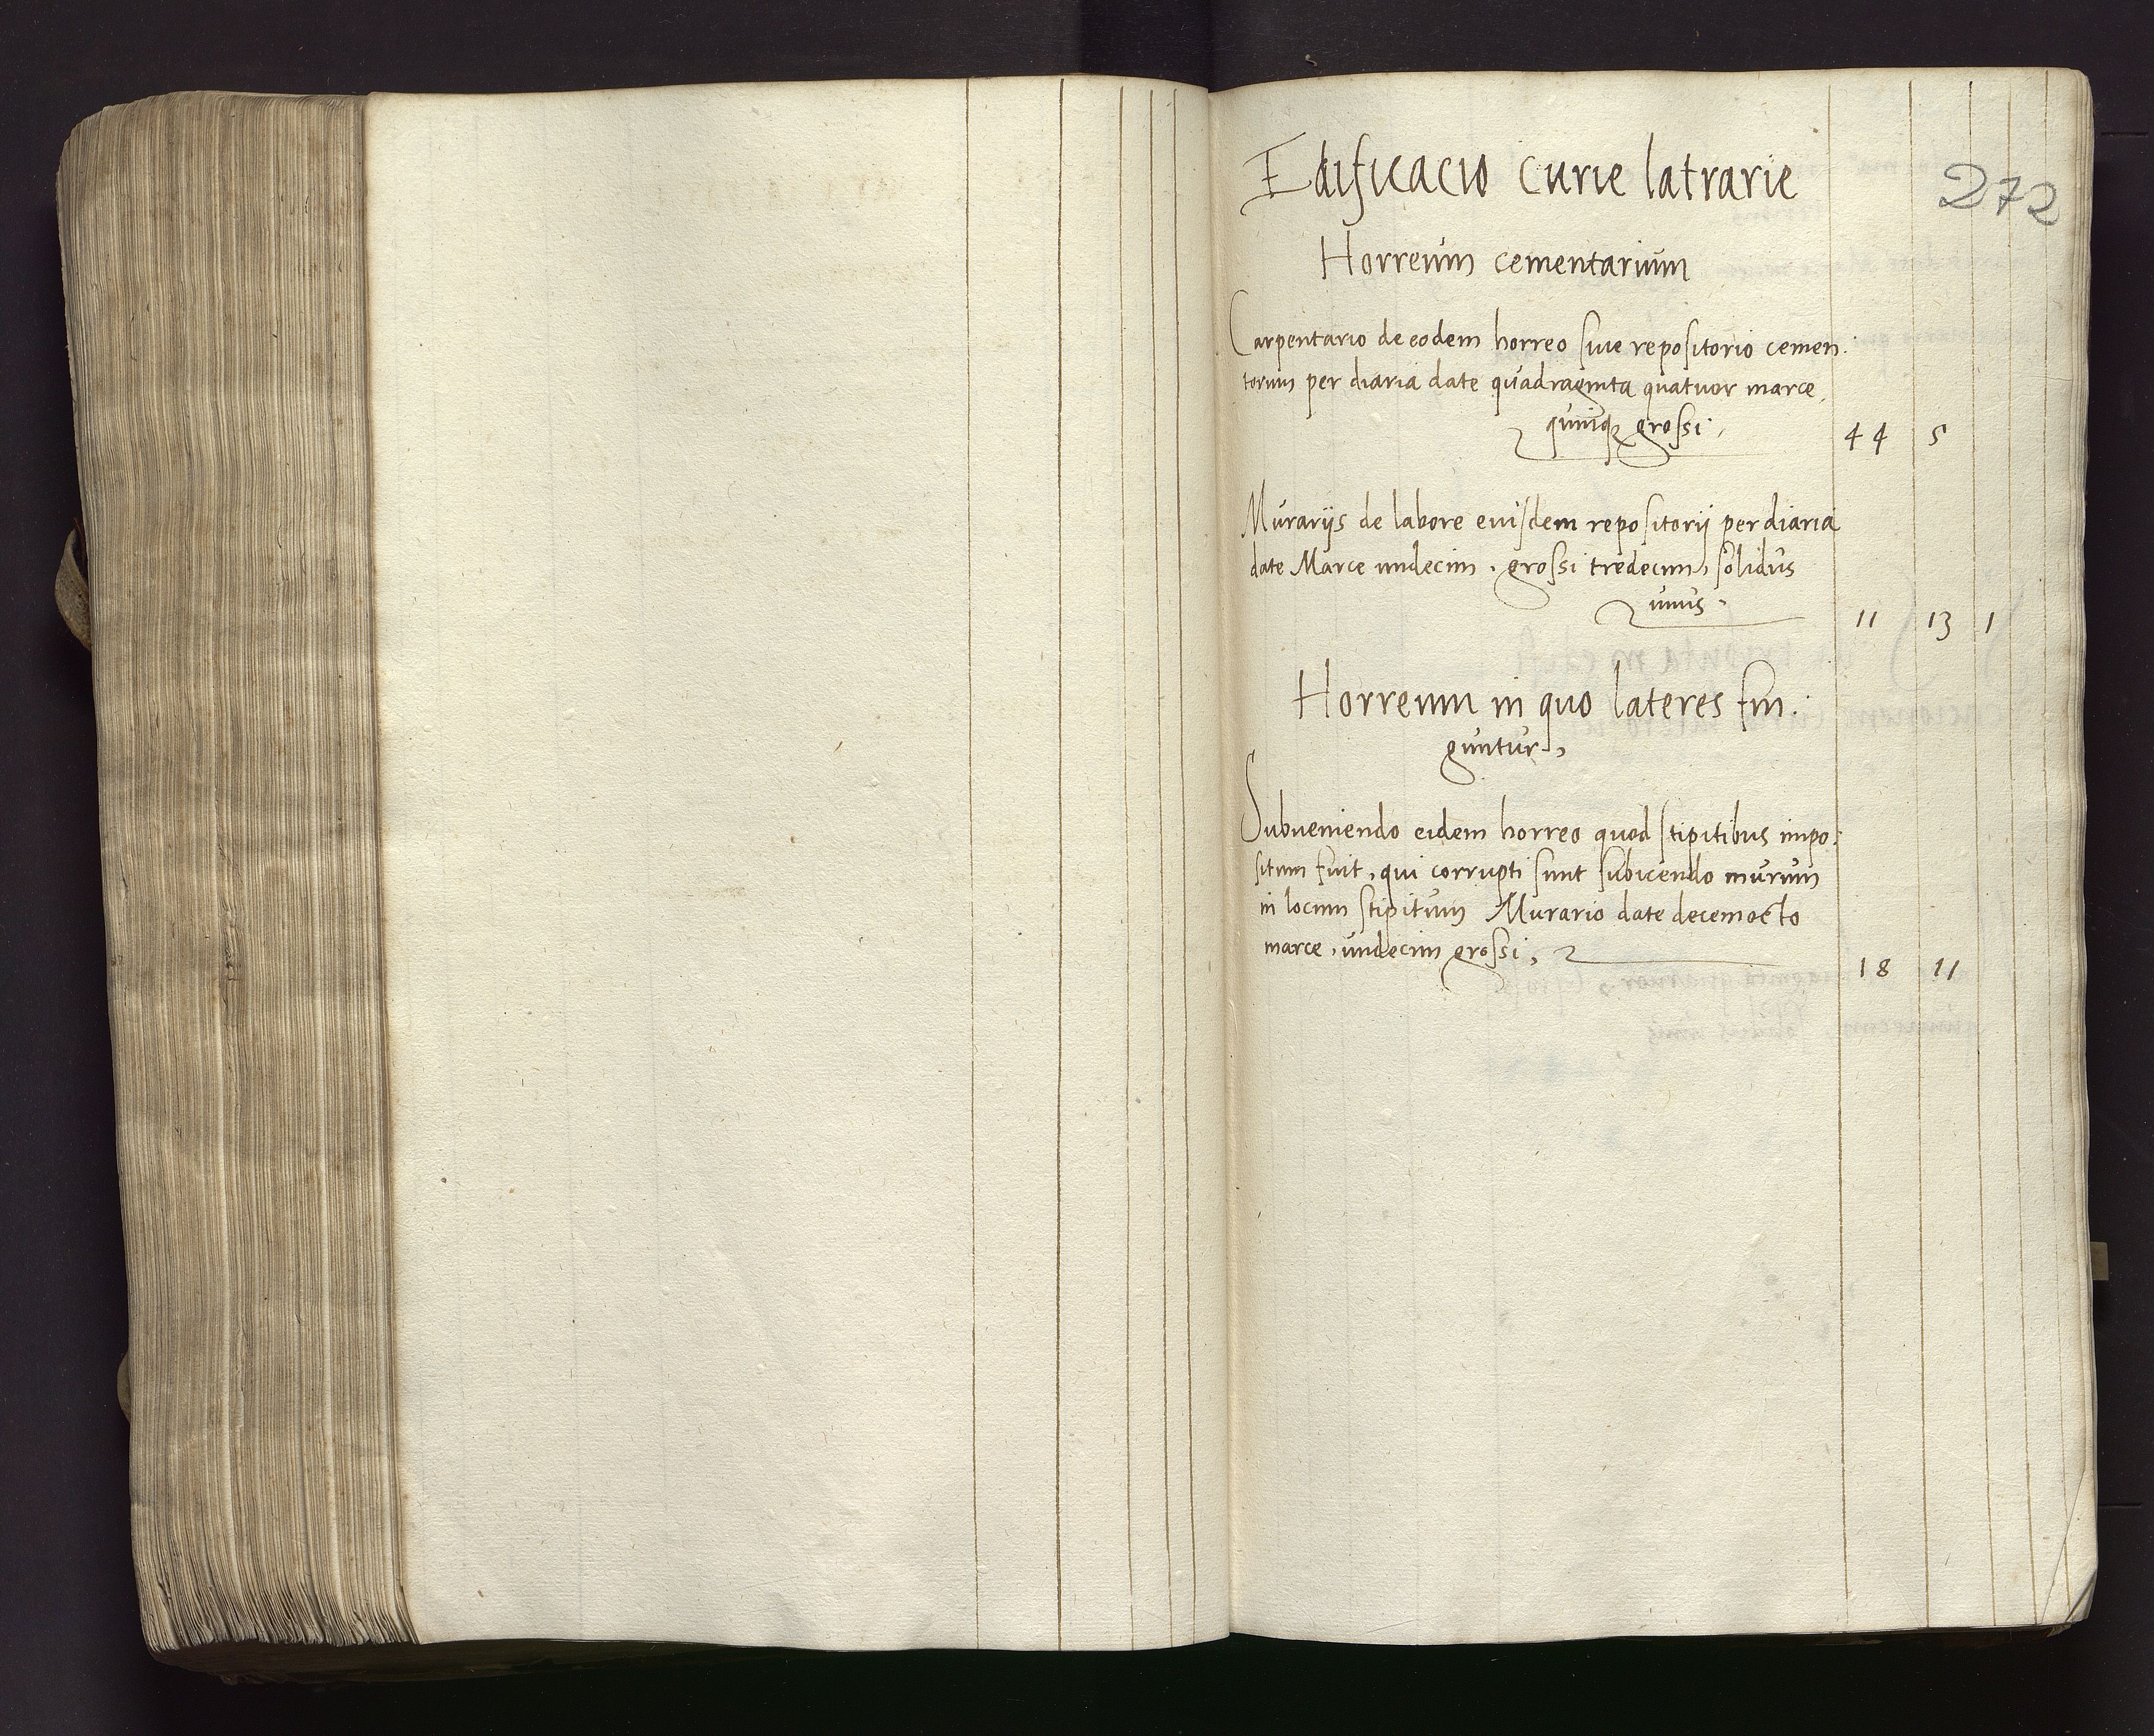 272
Edificacio curie latrarie
Horreum cementarium
Carpentario de eodem horreo siue repositorio cemen.
torum per diaria date quadraginta quatuor marce,
quinq grossi, 44 5
Murarijs de labore eiusdem repositorij per diaria
date Marce undecim, grossi tredecim, solidus
unus. 11 13 1
Horreum in quo lateres fin.
guntur,
Subueniendo eidem horreo quod stipitibus impo.
situm fuit, qui corrupti sunt subiciendo murum
in locum stipitum Murario date decemocto
marce, undecim grossi, 18 11